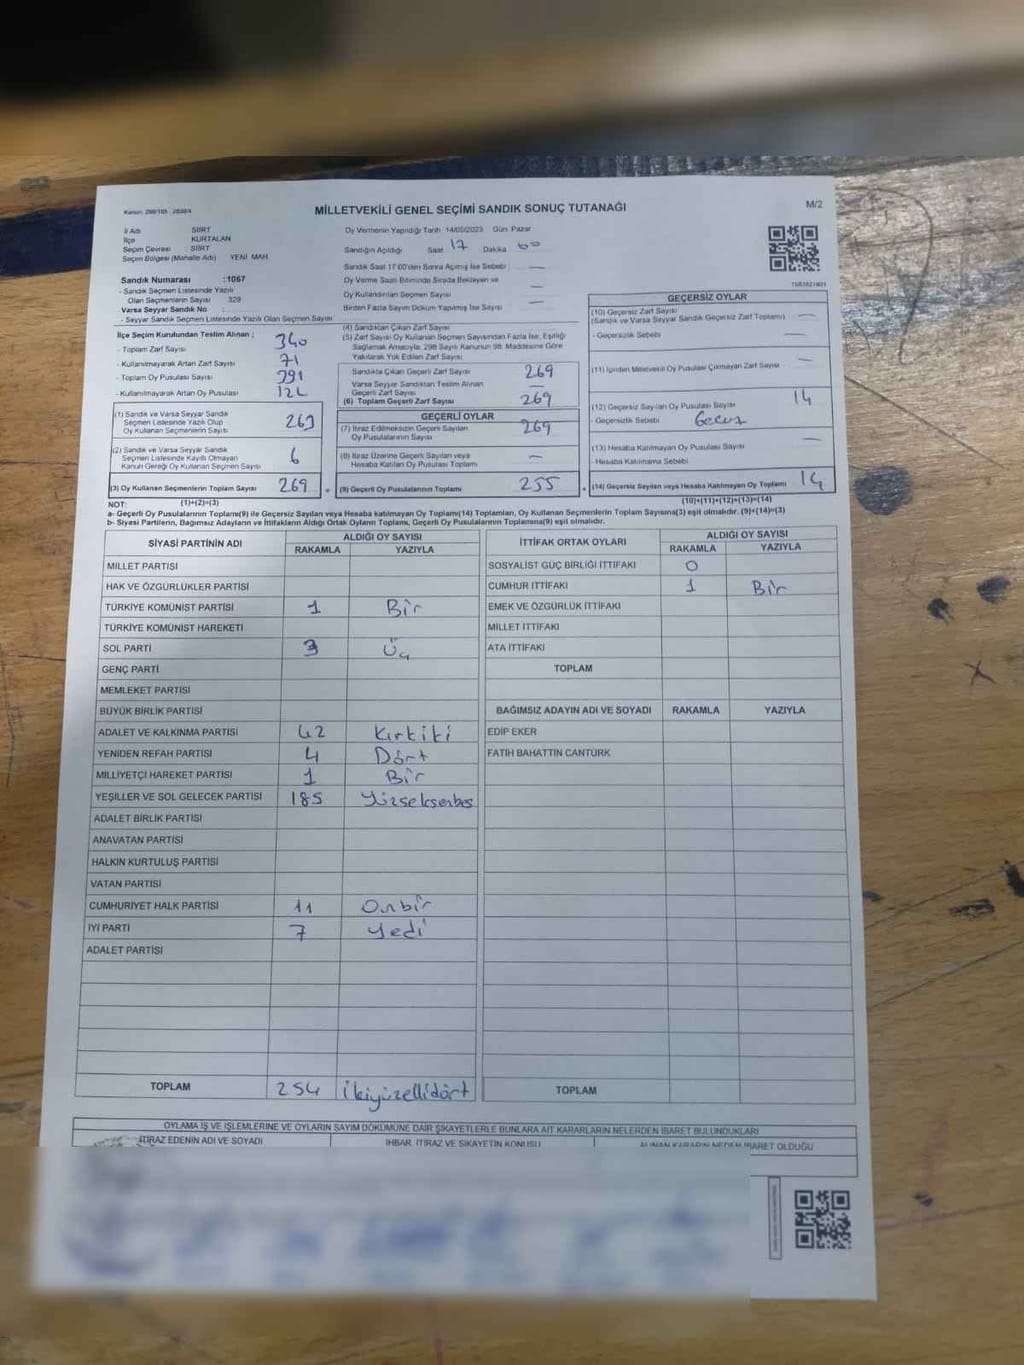 Kanun: 298/105 - 2839/4
MİLLETVEKİLİ GENEL SEÇİMİ SANDIK SONUÇ TUTANAĞI
M/2
İl Adı SİİRT
İlçe KURTALAN
Seçim Çevresi SİİRT
Seçim Bölgesi (Mahalle Adı) YENİ MAH.
Sandık Numarası :1067
- Sandık Seçmen Listesinde Yazılı
Olan Seçmenlerin Sayısı 329
Varsa Seyyar Sandık No :
- Seyyar Sandık Seçmen Listesinde Yazılı Olan Seçmen Sayısı
Oy Vermenin Yapıldığı Tarih 14/05/2023 Gün: Pazar
Sandığın Açıldığı Saat 17 Dakika 00
Sandık Saat 17:00'den Sonra Açılmış İse Sebebi —
Oy Verme Saati Bitiminde Sırada Bekleyen ve
Oy Kullandırılan Seçmen Sayısı —
Birden Fazla Sayım Döküm Yapılmış İse Sayısı —
İlçe Seçim Kurulundan Teslim Alınan ;
- Toplam Zarf Sayısı 340
- Kullanılmayarak Artan Zarf Sayısı 71
- Toplam Oy Pusulası Sayısı 391
- Kullanılmayarak Artan Oy Pusulası 122
(1) Sandık ve Varsa Seyyar Sandık
Seçmen Listesinde Yazılı Olup
Oy Kullanan Seçmenlerin Sayısı 263
(2) Sandık ve Varsa Seyyar Sandık
Seçmen Listesinde Kayıtlı Olmayan
Kanun Gereği Oy Kullanan Seçmen Sayısı 6
(3) Oy Kullanan Seçmenlerin Toplam Sayısı 269
(4) Sandıktan Çıkan Zarf Sayısı
(5) Zarf Sayısı Oy Kullanan Seçmen Sayısından Fazla İse, Eşitliği
Sağlamak Amacıyla; 298 Sayılı Kanunun 98. Maddesine Göre
Yakılarak Yok Edilen Zarf Sayısı
Sandıkta Çıkan Geçerli Zarf Sayısı 269
Varsa Seyyar Sandıktan Teslim Alınan
Geçerli Zarf Sayısı —
(6) Toplam Geçerli Zarf Sayısı 269
GEÇERLİ OYLAR
(7) İtiraz Edilmeksizin Geçerli Sayılan
Oy Pusulalarının Sayısı 269
(8) İtiraz Üzerine Geçerli Sayılan veya
Hesaba Katılan Oy Pusulası Toplamı —
(9) Geçerli Oy Pusulalarının Toplamı 255
GEÇERSİZ OYLAR
(10) Geçersiz Zarf Sayısı
(Sandık ve Varsa Seyyar Sandık Geçersiz Zarf Toplamı) —
- Geçersizlik Sebebi —
(11) İçinden Milletvekili Oy Pusulası Çıkmayan Zarf Sayısı —
(12) Geçersiz Sayılan Oy Pusulası Sayısı 14
- Geçersizlik Sebebi
(13) Hesaba Katılmayan Oy Pusulası Sayısı —
- Hesaba Katılmama Sebebi
(14) Geçersiz Sayılan veya Hesaba Katılmayan Oy Toplamı 14
NOT: (1)+(2)=(3)
(10)+(11)+(12)+(13)=(14)
a- Geçerli Oy Pusulalarının Toplamı(9) ile Geçersiz Sayılan veya Hesaba katılmayan Oy Toplamı(14) Toplamları, Oy Kullanan Seçmenlerin Toplam Sayısına(3) eşit olmalıdır. (9)+(14)=(3)
b- Siyasi Partilerin, Bağımsız Adayların ve İttifakların Aldığı Ortak Oyların Toplamı, Geçerli Oy Pusulalarının Toplamına(9) eşit olmalıdır.
SİYASİ PARTİNİN ADI ALDIĞI OY SAYISI
RAKAMLA YAZIYLA
MİLLET PARTİSİ
HAK VE ÖZGÜRLÜKLER PARTİSİ
TÜRKİYE KOMÜNİST PARTİSİ 1 Bir
TÜRKİYE KOMÜNİST HAREKETİ
SOL PARTİ 3 Üç
GENÇ PARTİ
MEMLEKET PARTİSİ
BÜYÜK BİRLİK PARTİSİ
ADALET VE KALKINMA PARTİSİ 42 Kırkiki
YENİDEN REFAH PARTİSİ 4 Dört
MİLLİYETÇİ HAREKET PARTİSİ 1 Bir
YEŞİLLER VE SOL GELECEK PARTİSİ 185 Yüzseksenbeş
ADALET BİRLİK PARTİSİ
ANAVATAN PARTİSİ
HALKIN KURTULUŞ PARTİSİ
VATAN PARTİSİ
CUMHURİYET HALK PARTİSİ 11 Onbir
İYİ PARTİ 7 Yedi
ADALET PARTİSİ
TOPLAM 254 ikiyüzellidört
İTTİFAK ORTAK OYLARI ALDIĞI OY SAYISI
RAKAMLA YAZIYLA
SOSYALİST GÜÇ BİRLİĞİ İTTİFAKI 0
CUMHUR İTTİFAKI 1 Bir
EMEK VE ÖZGÜRLÜK İTTİFAKI
MİLLET İTTİFAKI
ATA İTTİFAKI
TOPLAM
BAĞIMSIZ ADAYIN ADI VE SOYADI RAKAMLA YAZIYLA
EDİP EKER
FATİH BAHATTİN CANTÜRK
TOPLAM
OYLAMA İŞ VE İŞLEMLERİNE VE OYLARIN SAYIM DÖKÜMÜNE DAİR ŞİKAYETLERLE BUNLARA AİT KARARLARIN NELERDEN İBARET BULUNDUKLARI
İTİRAZ EDENİN ADI VE SOYADI İHBAR, İTİRAZ VE ŞİKAYETİN KONUSU ALINAN KARARIN NEDEN İBARET OLDUĞU